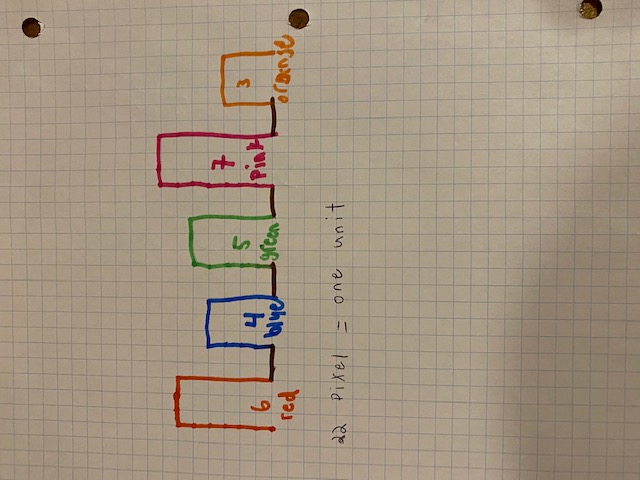 6
red
4
blue
5
green
7
pink
3
orange
22 pixel = one unit